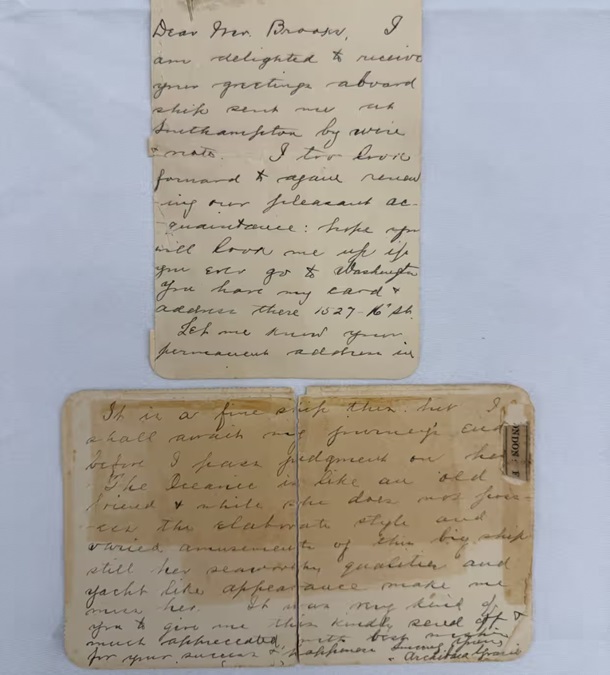 Dear Mr. Brooks, I
am delighted to receive
your greetings aboard
ship sent me at
Southampton by wire
& note. I too look
forward to again renew
-ing our pleasant ac-
quaintance: hope you
will look me up if
you ever go to Washington
You have my card &
address there 1527-16th St.
Let me know your
permanent address in
It is a fine ship this but I
shall await my journey's end
before I pass judgment on her
The Oceanic is like an old
friend & while she does not poss-
ess the elaborate style and
varied amusements of this big ship
still her seaworthy qualities and
yacht like appearance make me
miss her. It was very kind of
you to give me this kindly send off &
much appreciated with best wishes
for your success & happiness
Archibald Gracie
ONDON: E